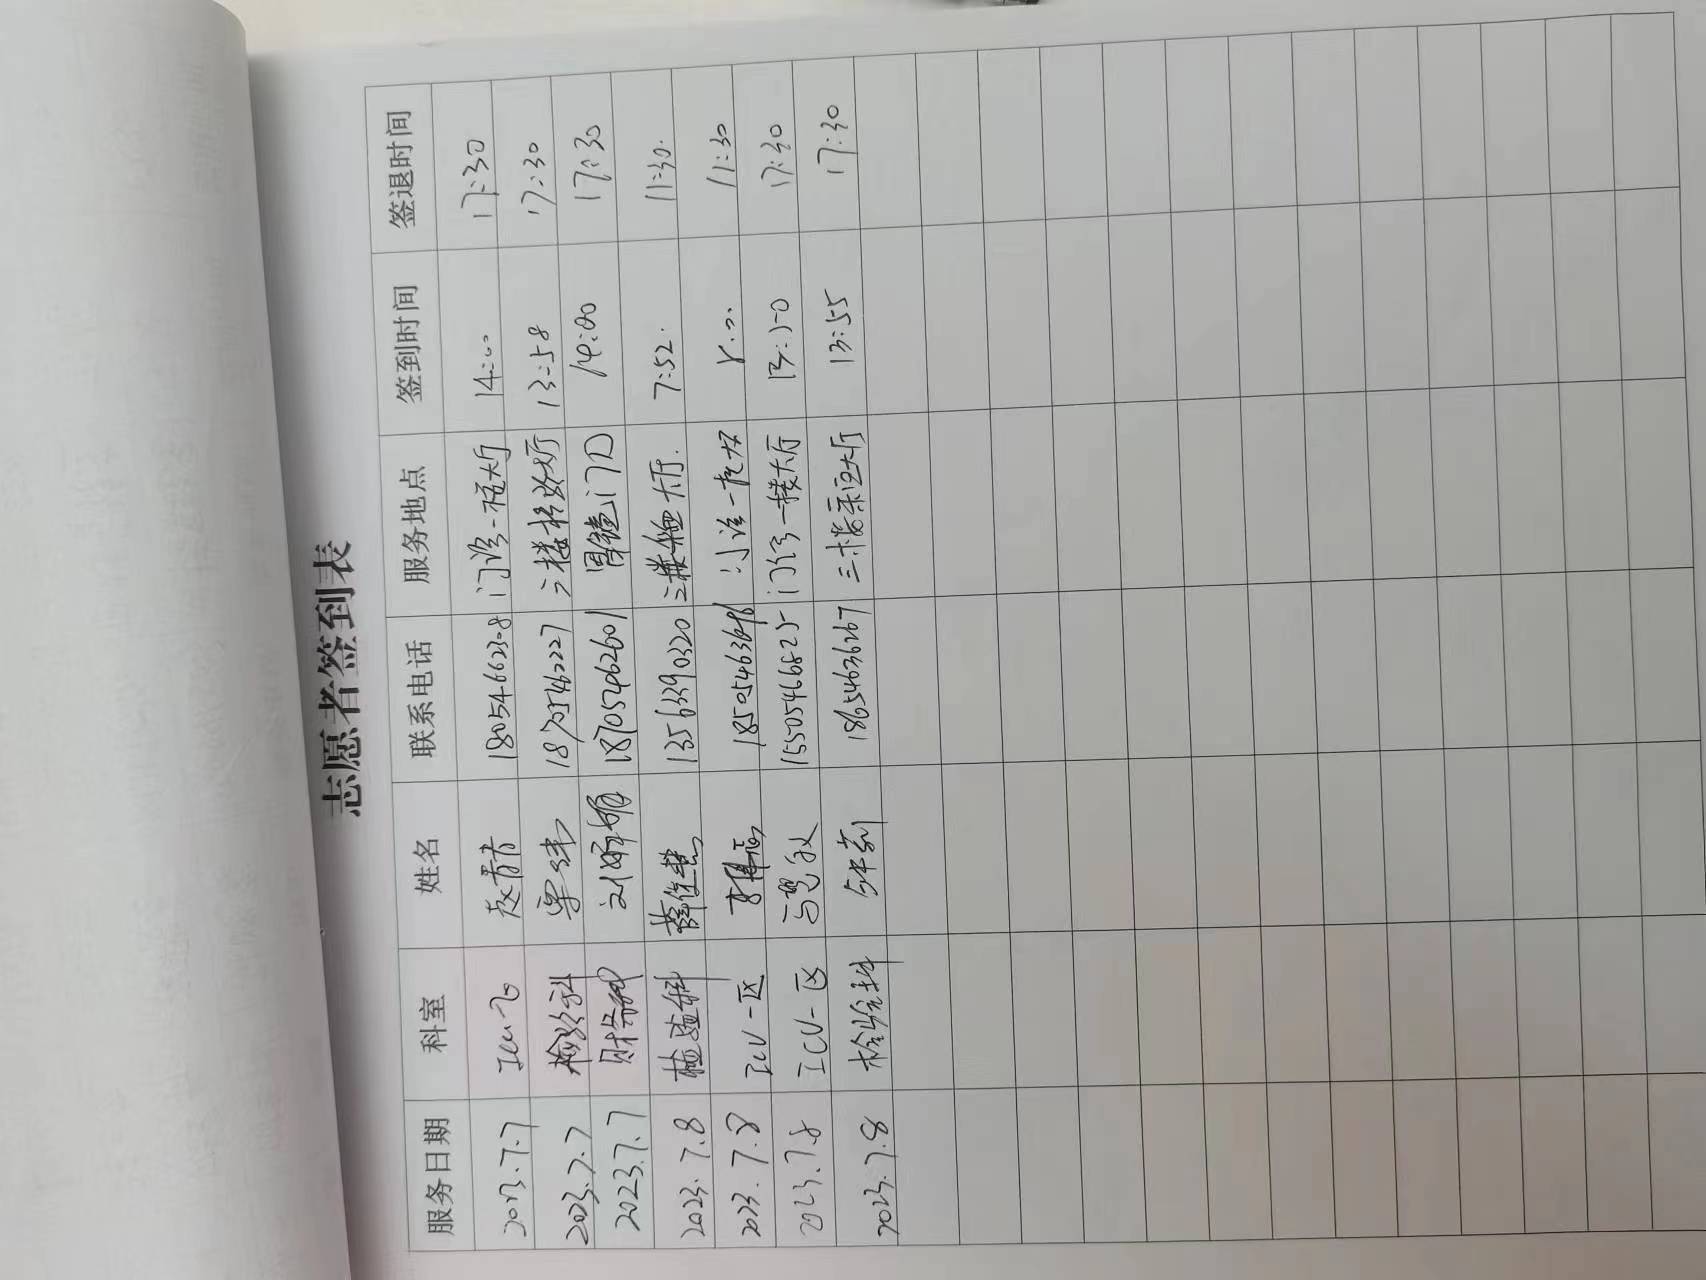 志愿者签到表
服务日期 科室 姓名 联系电话 服务地点 签到时间 签退时间
2023.7.7 ICU 赵青青 门诊一楼大厅 14:00 17:30
2023.7.7 检验科 二楼检验大厅 13:58 17:30
2023.7.7 财务科 18705462601 胃镜门口 14:00 17:30
2023.7.8 检验科 薛佳慧 13563390320 二楼 大厅. 7:52. 11:30.
2023.7.8 ICU一区 门诊一楼大厅 8:00 11:30
2023.7.8 ICU一区 15505466825 门诊一楼大厅 13:50 17:30
2023.7.8 检验科 18654636267 三楼采血大厅 13:55 17:30